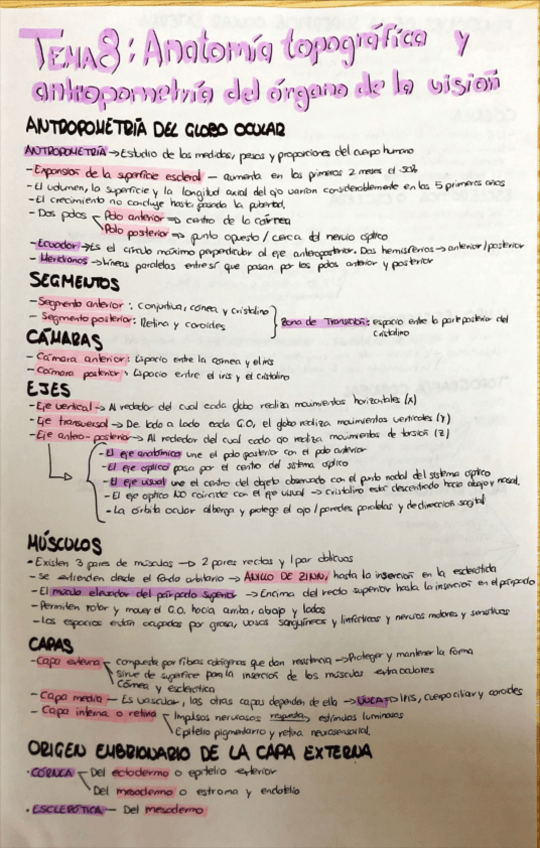 TEMA 8: Anatomía topográfica y
antropometría del órgano de la visión
ANTROPOMETRÍA DEL GLOBO OCULAR
ANTROPOMETRÍA → Estudio de las medidas, pesos y proporciones del cuerpo humano
- Expansión de la superficie escleral - aumenta en los primeros 2 meses el 50%
- El volumen, la superficie y la longitud axial del ojo varían considerablemente en los 5 primeros años
- El crecimiento no concluye hasta pasada la pubertad.
- Dos polos Polo anterior → centro de la córnea
Polo posterior → punto opuesto / cerca del nervio óptico
- Ecuador → Es el círculo máximo perpendicular al eje anteroposterior. Dos hemisferios → anterior/posterior
- Meridianos → Líneas paralelas entre sí que pasan por los polos anterior y posterior
SEGMENTOS
- Segmento anterior: conjuntiva, córnea y cristalino
- Segmento posterior: Retina y coroides
Zona de Transición: espacio entre la parte posterior del
cristalino
CÁMARAS
- Cámara anterior: Espacio entre la córnea y el iris
- Cámara posterior: Espacio entre el iris y el cristalino
EJES
- Eje vertical → Al rededor del cual cada globo realiza movimientos horizontales (X)
- Eje transversal → De lado a lado cada G.O, el globo realiza movimientos verticales (Y)
- Eje antero-posterior → Al rededor del cual cada ojo realiza movimientos de torsión (Z)
- El eje anatómico une el polo posterior con el polo anterior
- El eje óptico pasa por el centro del sistema óptico
- El eje visual une el centro del objeto observado con el punto nodal del sistema óptico
- El eje óptico NO coincide con el eje visual → cristalino está descentrado hacia abajo y nasal.
- La órbita ocular alberga y protege el ojo / paredes paralelas y de dirección sagital
MÚSCULOS
- Existen 3 pares de músculos → 2 pares rectos y 1 par oblicuos
- Se extienden desde el fondo orbitario → ANILLO DE ZINN, hasta la inserción en la esclerótida
- El músculo elevador del párpado superior → Encima del recto superior hasta la inserción en el párpado
- Permiten rotar y mover el G.O. hacia arriba, abajo y lados
- Los espacios están ocupados por grasa, vasos sanguíneos y linfáticos y nervios motores y sensitivos
CAPAS
- Capa externa compuesta por fibras colágenas que dan resistencia → Proteger y mantener la forma
Sirve de superficie para la inserción de los músculos extraoculares
Córnea y esclerótica
- Capa media - Es vascular, las otras capas dependen de ella → UVEA → IRIS, cuerpo ciliar y coroides
- Capa interna o retina Impulsos nerviosos estímulos luminosos
Epitelio pigmentario y retina neurosensorial.
ORIGEN EMBRIONARIO DE LA CAPA EXTERNA
· CÓRNEA Del ectodermo o epitelio exterior
Del mesodermo o estroma y endotelio
· ESCLERÓTICA - Del mesodermo